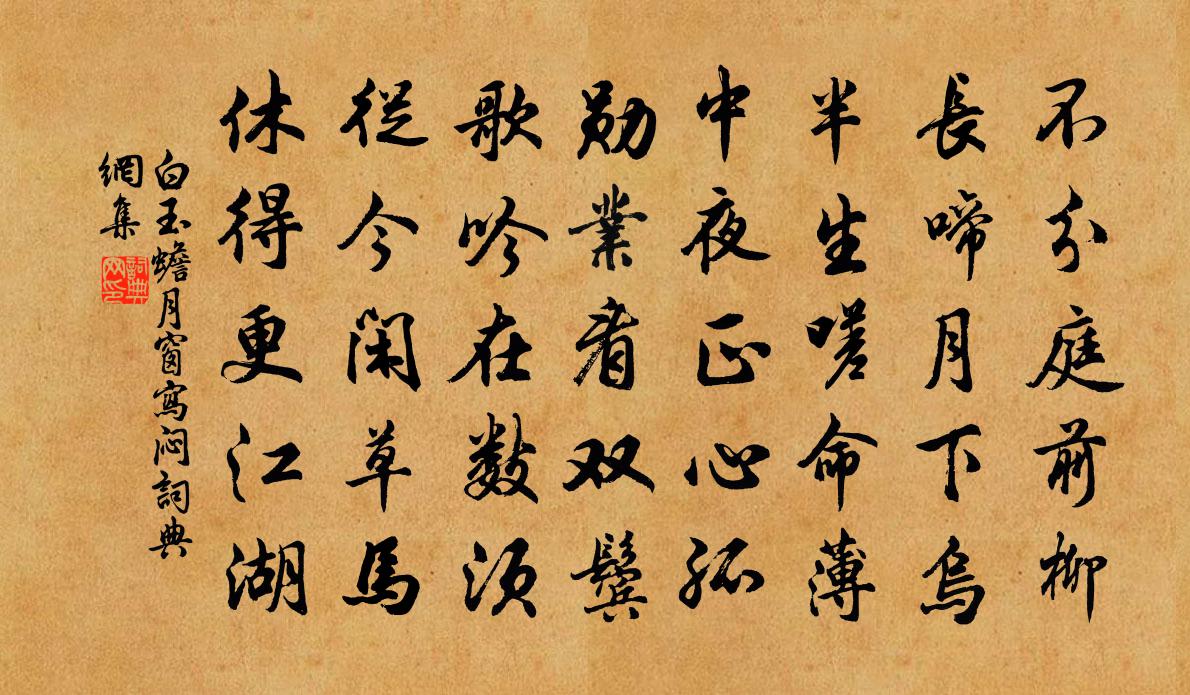 不分庭前柳
長啼月下烏
半生嗟命薄
中夜正心孤
勛業看双鬢
歌吟在數須
從今閑草馬
休得更江湖
白玉蟾月窗寫悶詞典
網集
詞典
网印